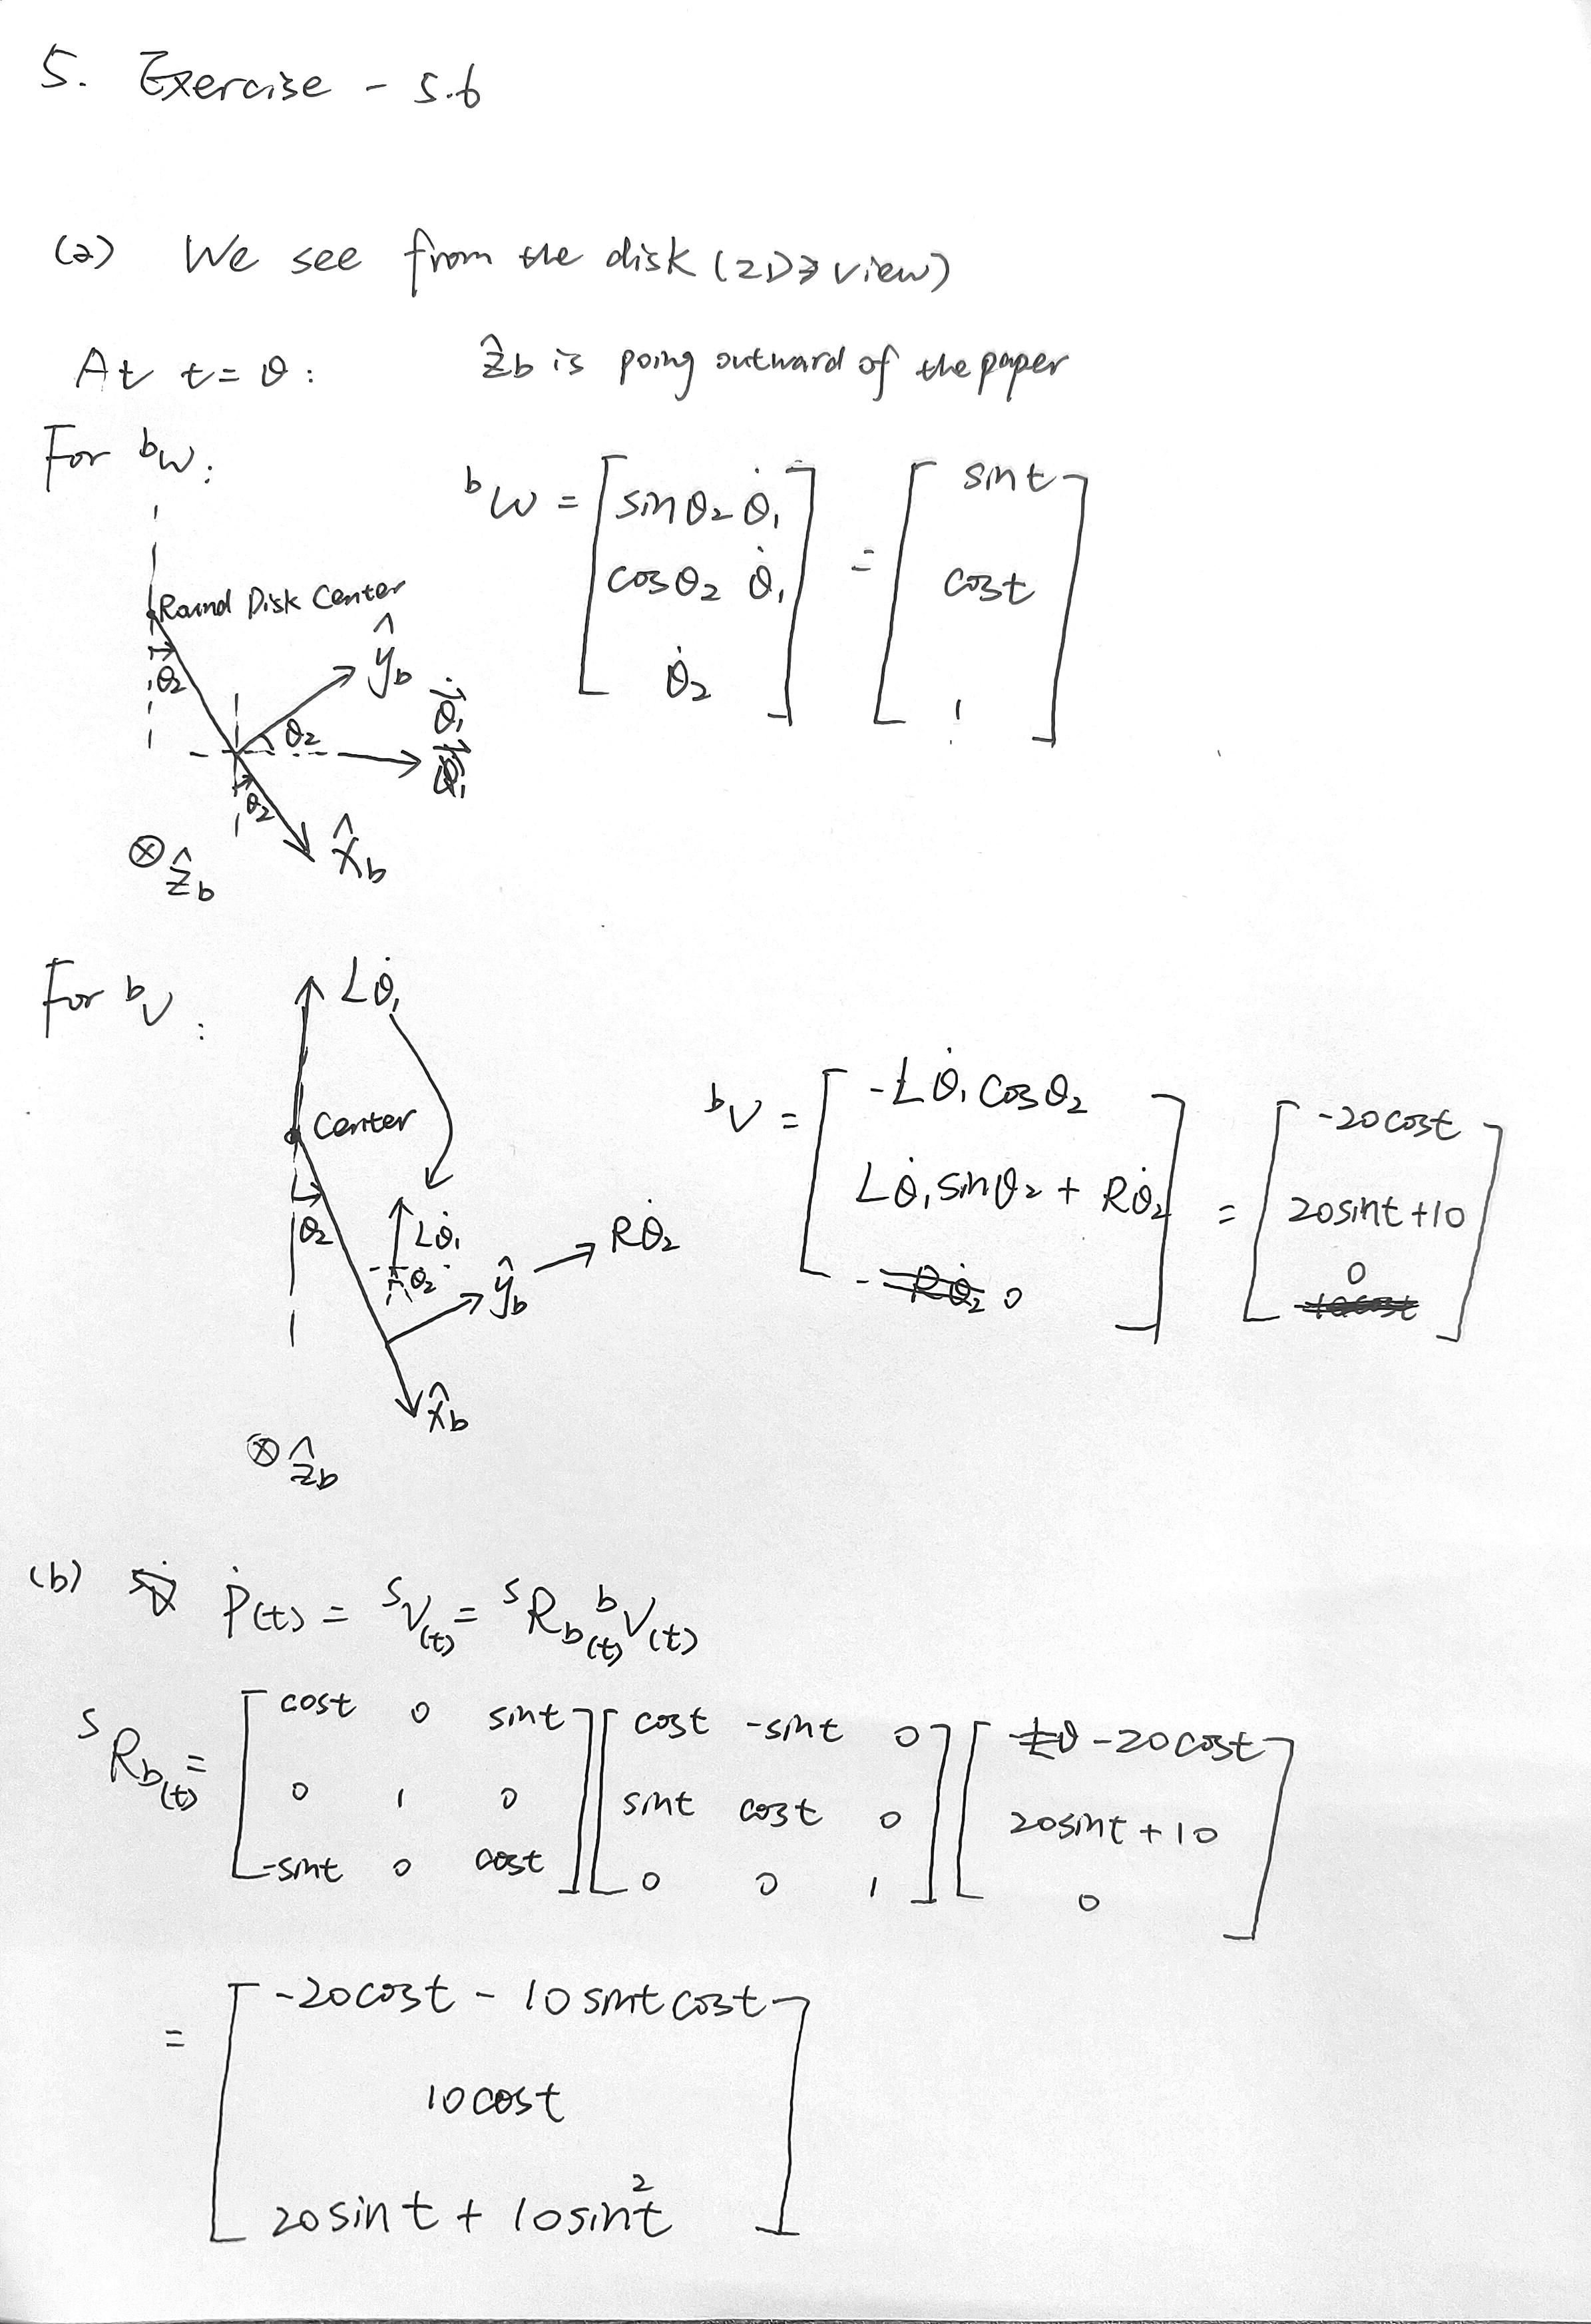 5. Exercise - 5.6
(a) We see from the disk (2D view)
At t=0: ẑb is poing outward of the paper
For ᵇω:
ᵇω = [sinθ₂ θ̇₁; cosθ₂ θ̇₁; θ̇₂] = [sint; cost; 1]
Round Disk Center
θ₂
ŷb
θ̇₁
θ₂
θ₂
x̂b
⊗ ẑb
For ᵇv:
Lθ̇₁
Center
ᵇv = [-Lθ̇₁ cosθ₂; Lθ̇₁ sinθ₂ + Rθ̇₂; 0] = [-20cost; 20sint+10; 0]
θ₂
Lθ̇₁
θ₂
ŷb
Rθ̇₂
x̂b
⊗ ẑb
(b) Ṗ(t) = ˢV(t) = ˢRb(t) ᵇV(t)
ˢRb(t) = [cost 0 sint; 0 1 0; -sint 0 cost] [cost -sint 0; sint cost 0; 0 0 1] [-20cost; 20sint+10; 0]
= [-20cost - 10sintcost; 10cost; 20sint + 10sin²t]